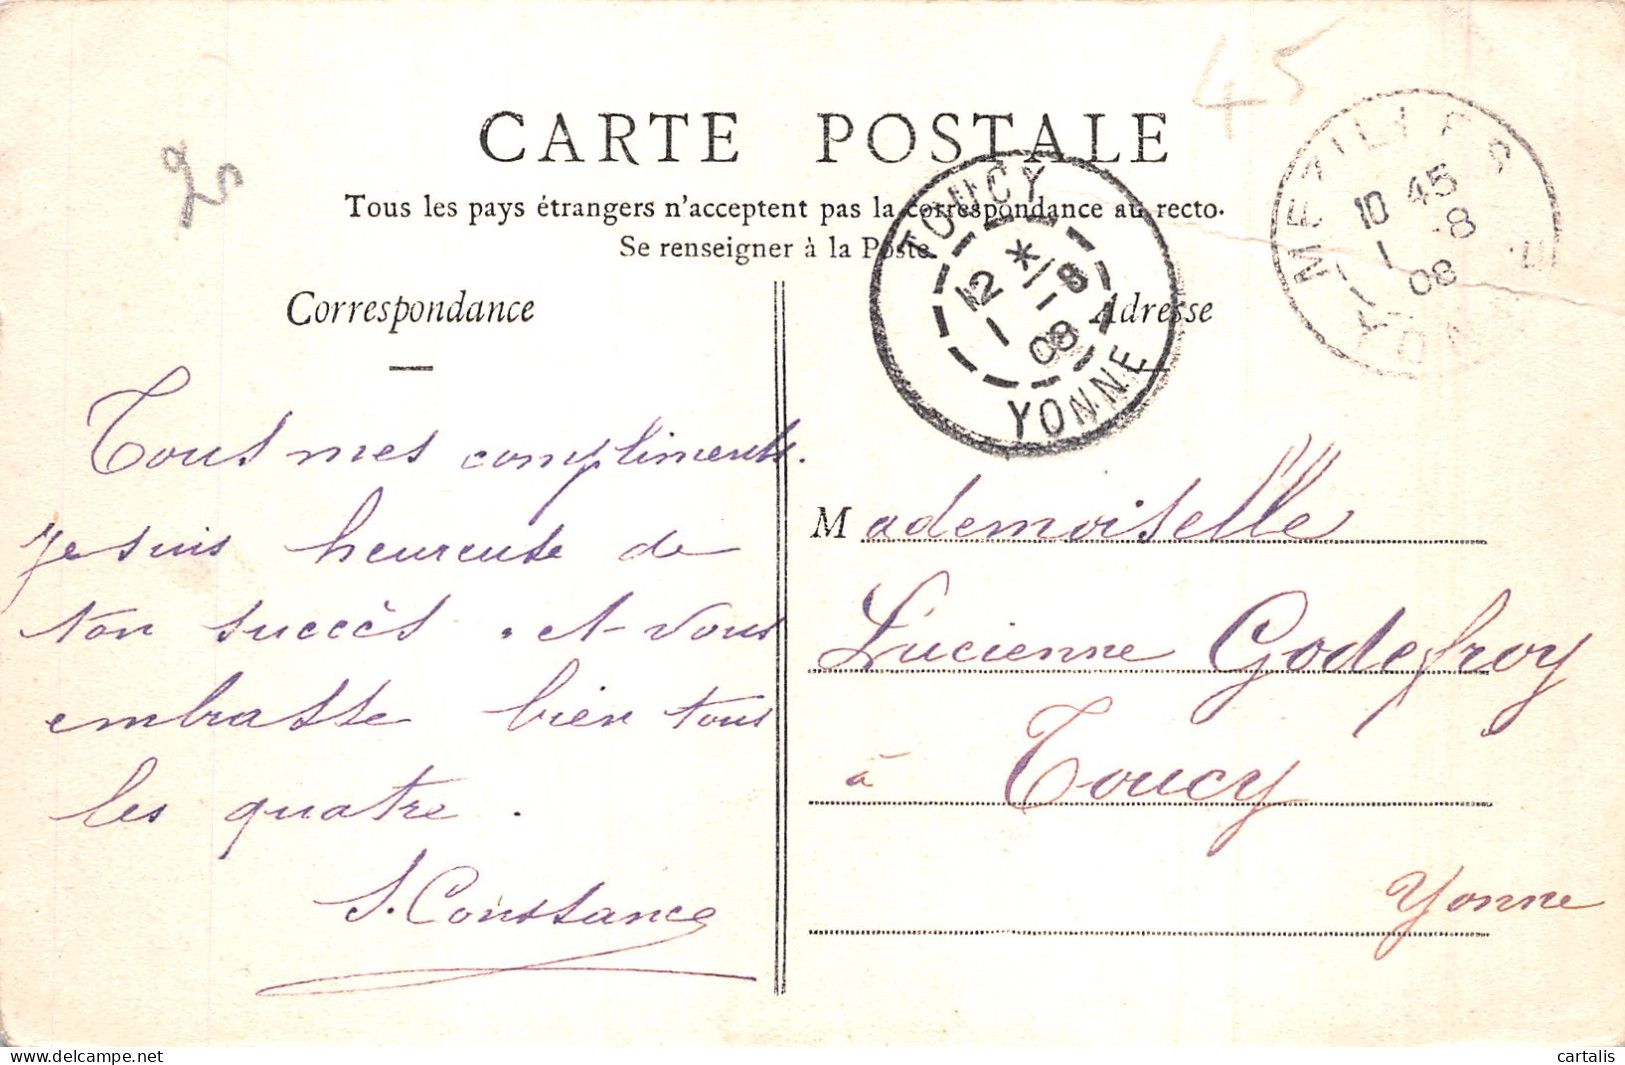 45
CARTE POSTALE
Tous les pays étrangers n'acceptent pas la correspondance au recto.
Se renseigner à la Poste.
TOUCY
12 * 1 - 8
08
YONNE
MEZILLES
10 45
1 - 8
08
YONNE
Correspondance
Tous mes compliments.
Je suis heureuse de
ton succès. et vous
embrasse bien tous
les quatre.
S. Constance
Adresse
Mademoiselle
Lucienne Godefroy
à Toucy
Yonne
delcampe.net
cartalis